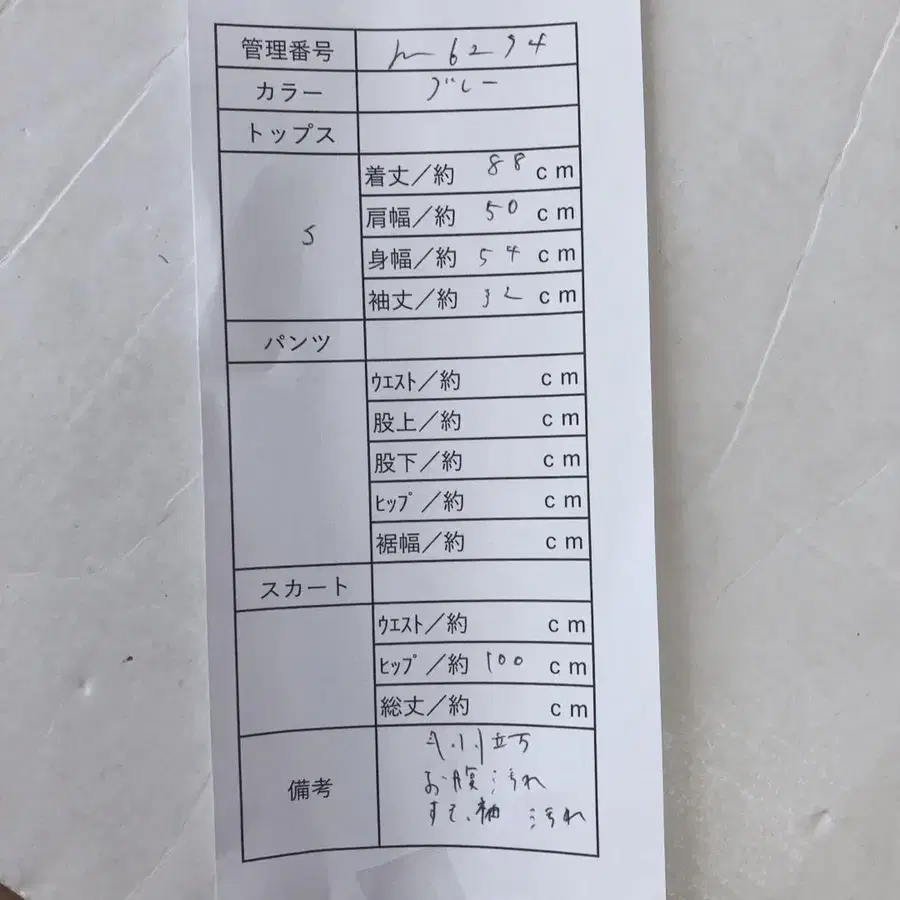 管理番号 m6294
カラー グレー
トップス
S
着丈／約 88 cm
肩幅／約 50 cm
身幅／約 54 cm
袖丈／約 32 cm
パンツ
ウエスト／約 cm
股上／約 cm
股下／約 cm
ヒップ／約 cm
裾幅／約 cm
スカート
ウエスト／約 cm
ヒップ／約 100 cm
総丈／約 cm
備考
毛羽立ち
お腹汚れ
すそ、袖 汚れ